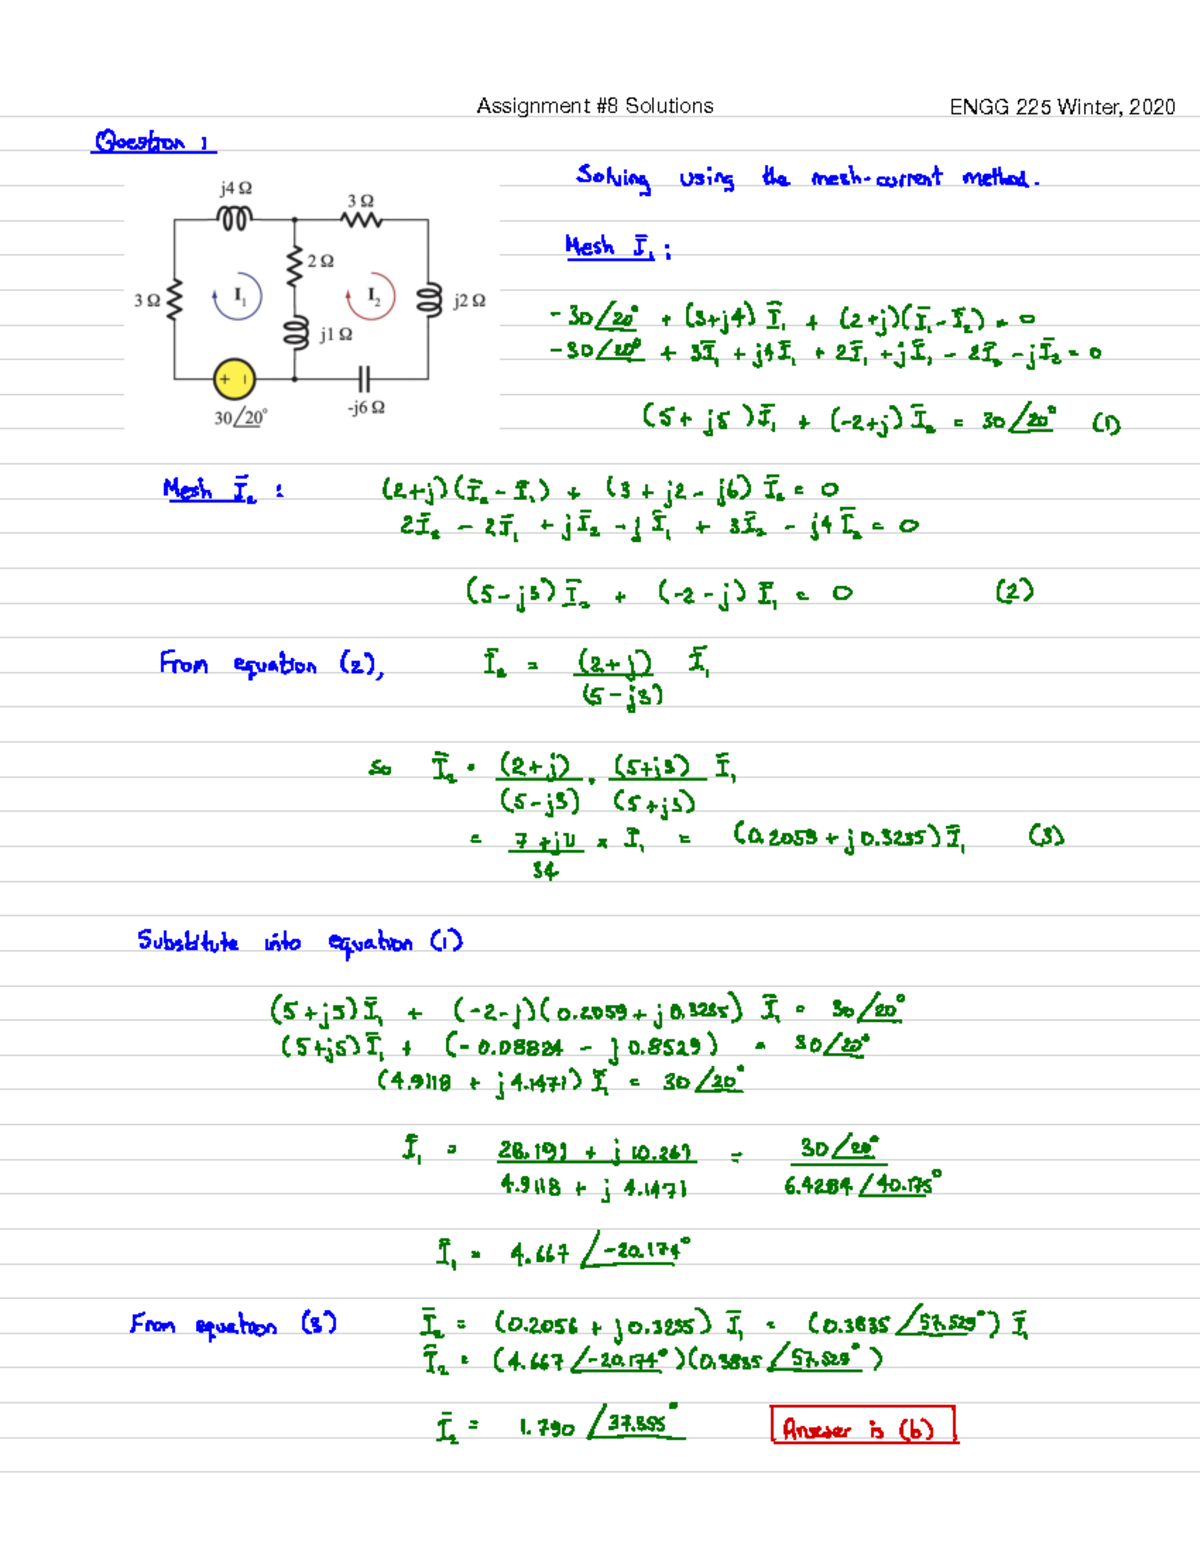 Assignment #8 Solutions
ENGG 225 Winter, 2020
Question 1
j4 Ω
3 Ω
2 Ω
3 Ω
I₁
I₂
j2 Ω
j1 Ω
+ −
30/20°
-j6 Ω
Solving using the mesh-current method.
Mesh Ī₁ :
-30/20° + (3+j4) Ī₁ + (2+j)(Ī₁-Ī₂) = 0
-30/20° + 3Ī₁ + j4Ī₁ + 2Ī₁ + jĪ₁ - 2Ī₂ - jĪ₂ = 0
(5+ j5 )Ī₁ + (-2+j) Ī₂ = 30/20° (1)
Mesh Ī₂ : (2+j)(Ī₂ - Ī₁) + (3 + j2 - j6) Ī₂ = 0
2Ī₂ - 2Ī₁ + jĪ₂ - jĪ₁ + 3Ī₂ - j4Ī₂ = 0
(5-j3) Ī₂ + (-2-j) Ī₁ = 0 (2)
From equation (2), Ī₂ = (2+j) Ī₁
(5-j3)
so Ī₂ = (2+j) . (5+j3) Ī₁
(5-j3) (5+j3)
= 7+j11 x Ī₁ = (0.2059 + j0.3235) Ī₁ (3)
34
Substitute into equation (1)
(5+j5)Ī₁ + (-2-j)(0.2059 + j0.3235) Ī₁ = 30/20°
(5+j5)Ī₁ + (-0.08824 - j0.8529) = 30/20°
(4.9118 + j4.1471) Ī₁ = 30/20°
Ī₁ = 28.191 + j10.261 = 30/20°
4.9118 + j4.1471 6.4284/40.175°
Ī₁ = 4.667 /-20.174°
From equation (3) Ī₂ = (0.2056 + j0.3235) Ī₁ = (0.3835/57.529°) Ī₁
Ī₂ = (4.667/-20.174°)(0.3835/57.529°)
Ī₂ = 1.790 /37.355° Answer is (b)